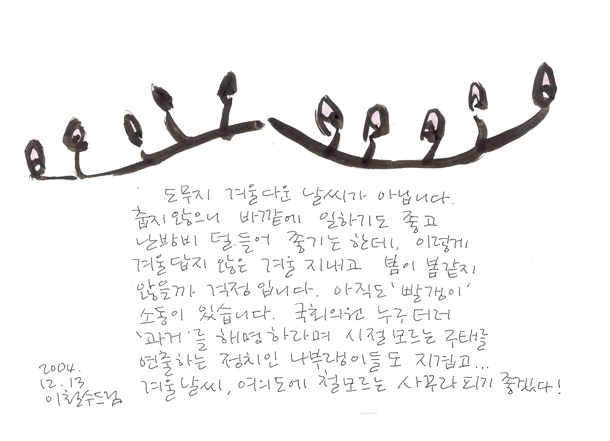 도무지 겨울다운 날씨가 아닙니다.
춥지 않으니 바깥에 일하기도 좋고
난방비 덜 들어 좋기는 한데, 이렇게
겨울답지 않은 겨울 지내고 봄이 봄같지
않을까 걱정입니다. 아직도 '빨갱이'
소동이 있습니다. 국회의원 누구더러
'과거'를 해명하라며 시절모르는 추태를
연출하는 정치인 나부랭이들도 지겹고...
겨울날씨, 여의도에 철모르는 사꾸라 피기 좋겠다!
2004.
12.13
이철수드림